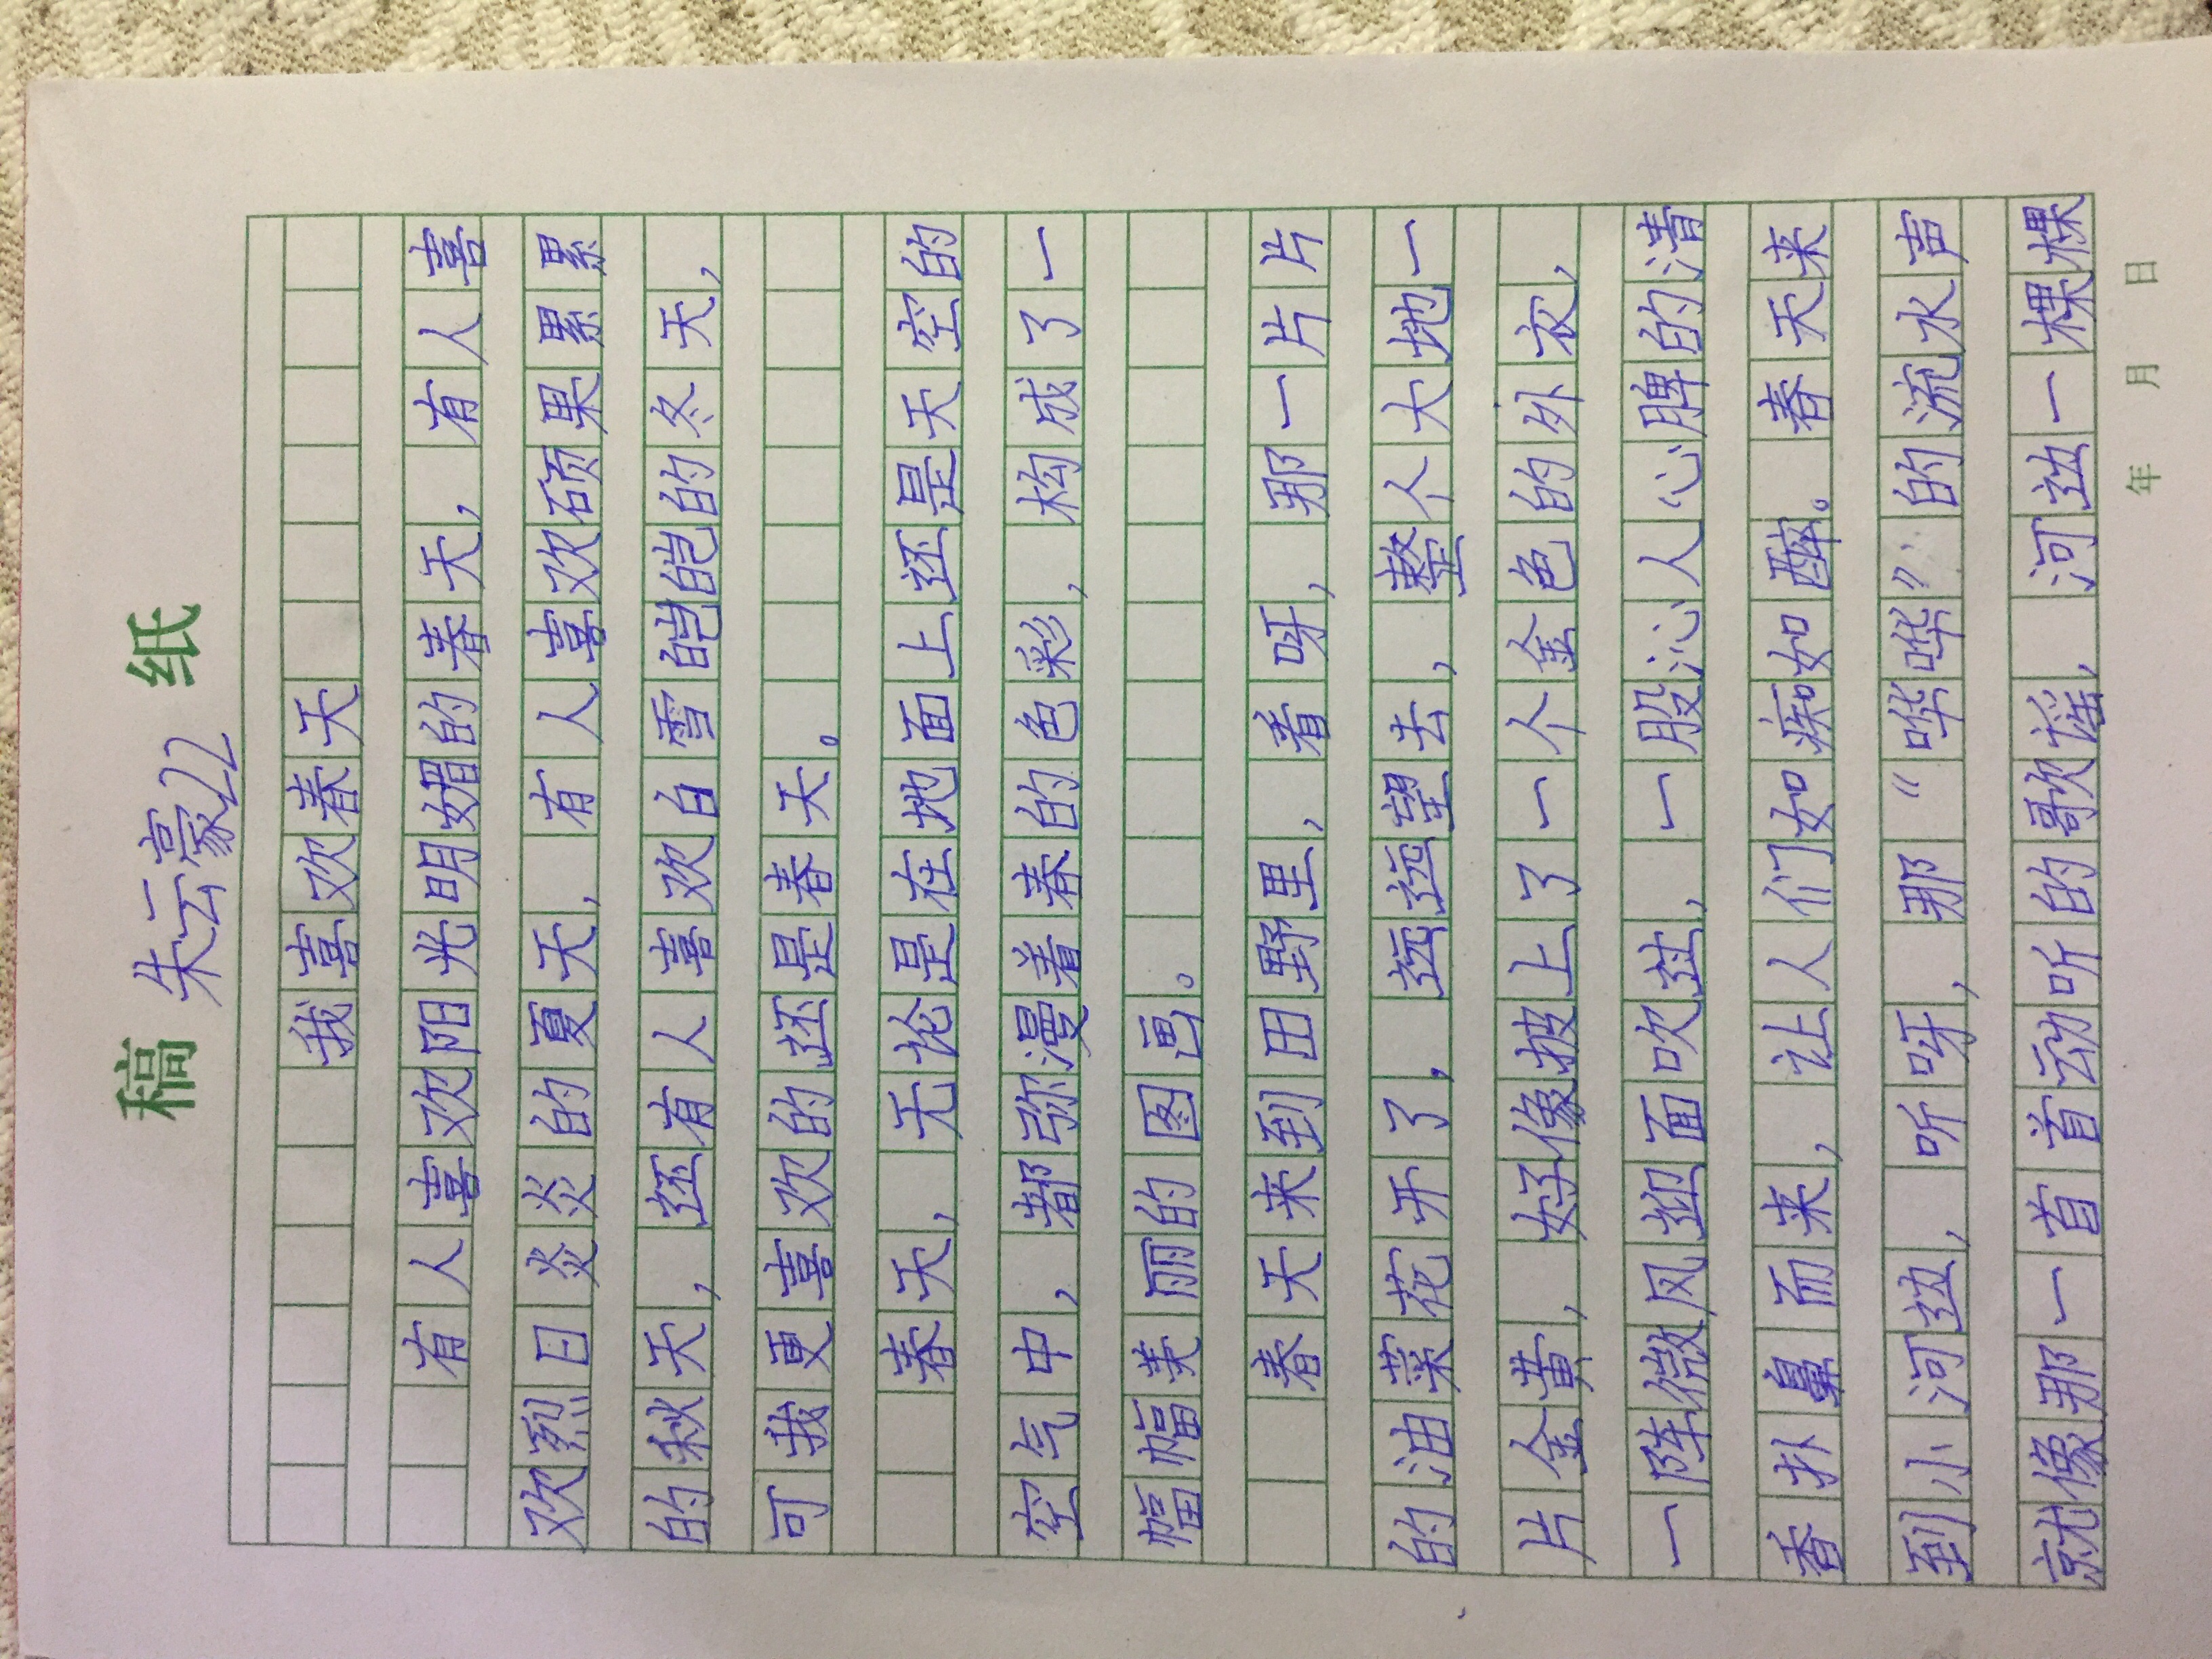 稿 纸
朱云豪22
我喜欢春天
有人喜欢阳光明媚的春天，有人喜
欢烈日炎炎的夏天，有人喜欢硕果累累
的秋天，还有人喜欢白雪皑皑的冬天，
可我更喜欢的还是春天。
春天，无论是在地面上还是天空的
空气中，都弥漫着春的色彩，构成了一
幅幅美丽的图画。
春天来到田野里，看呀，那一片片
的油菜花开了，远远望去，整个大地一
片金黄，好像披上了一个金色的外衣，
一阵微风迎面吹过，一股沁人心脾的清
香扑鼻而来，让人们如痴如醉。春天来
到小河边，听呀，那“哗哗”的流水声
就像那一首首动听的歌谣，河边一棵棵
年 月 日